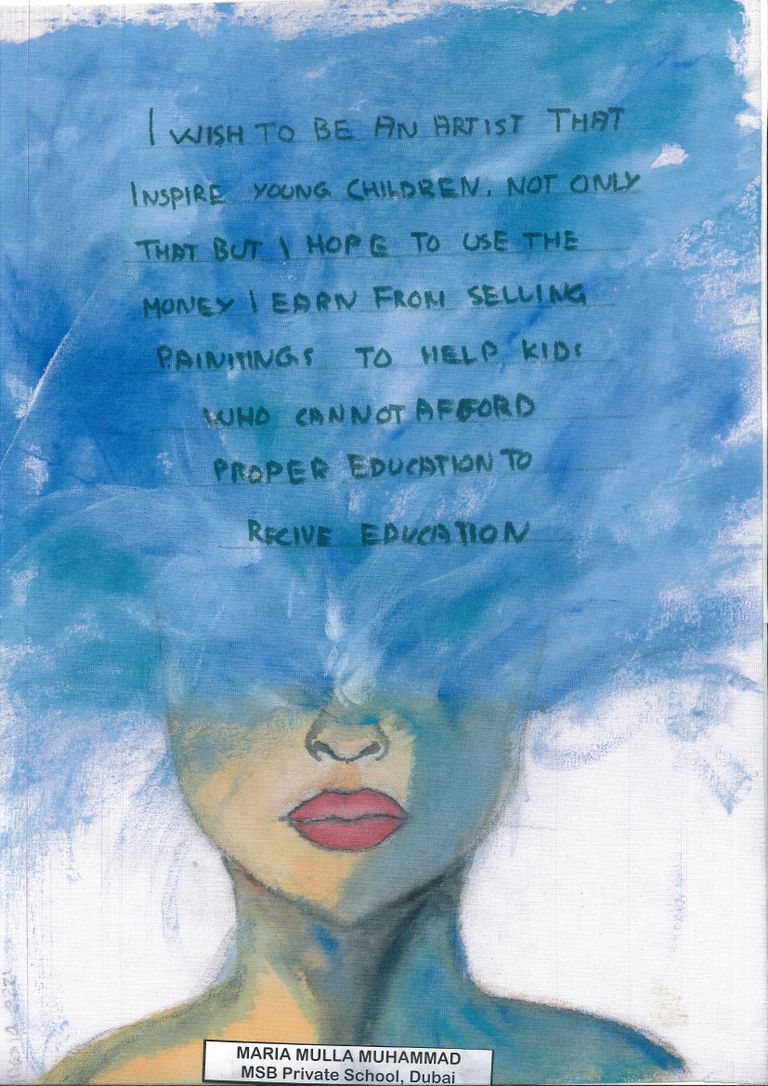 I WISH TO BE AN ARTIST THAT
INSPIRE YOUNG CHILDREN. NOT ONLY
THAT BUT I HOPE TO USE THE
MONEY I EARN FROM SELLING
PAINITINGS TO HELP KIDS
WHO CANNOT AFFORD
PROPER EDUCATION TO
RECIVE EDUCATION
MARIA MULLA MUHAMMAD
MSB Private School, Dubai